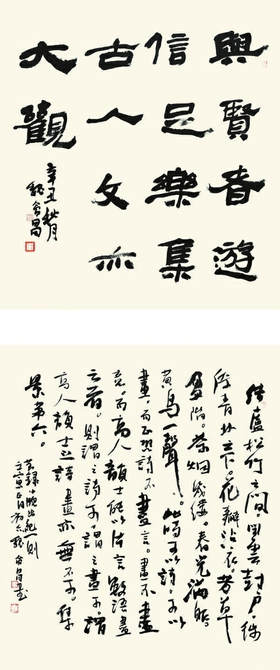 與賢者遊
信足樂集
古人文亦
大觀
辛丑秋月
結廬松竹之間閒雲封戶徙
倚青林之下花瓣沾衣芳草
盈階茶烟幾縷春光滿眼
黃鳥一聲此時可以詩可以
畫而正恐詩不盡言畫不盡
意而高人韻士能以片言數語盡
之者則謂之詩可謂之畫可則謂
高人韻士之詩畫亦無不可集
景第六
錄小窗幽記一則
壬寅正月